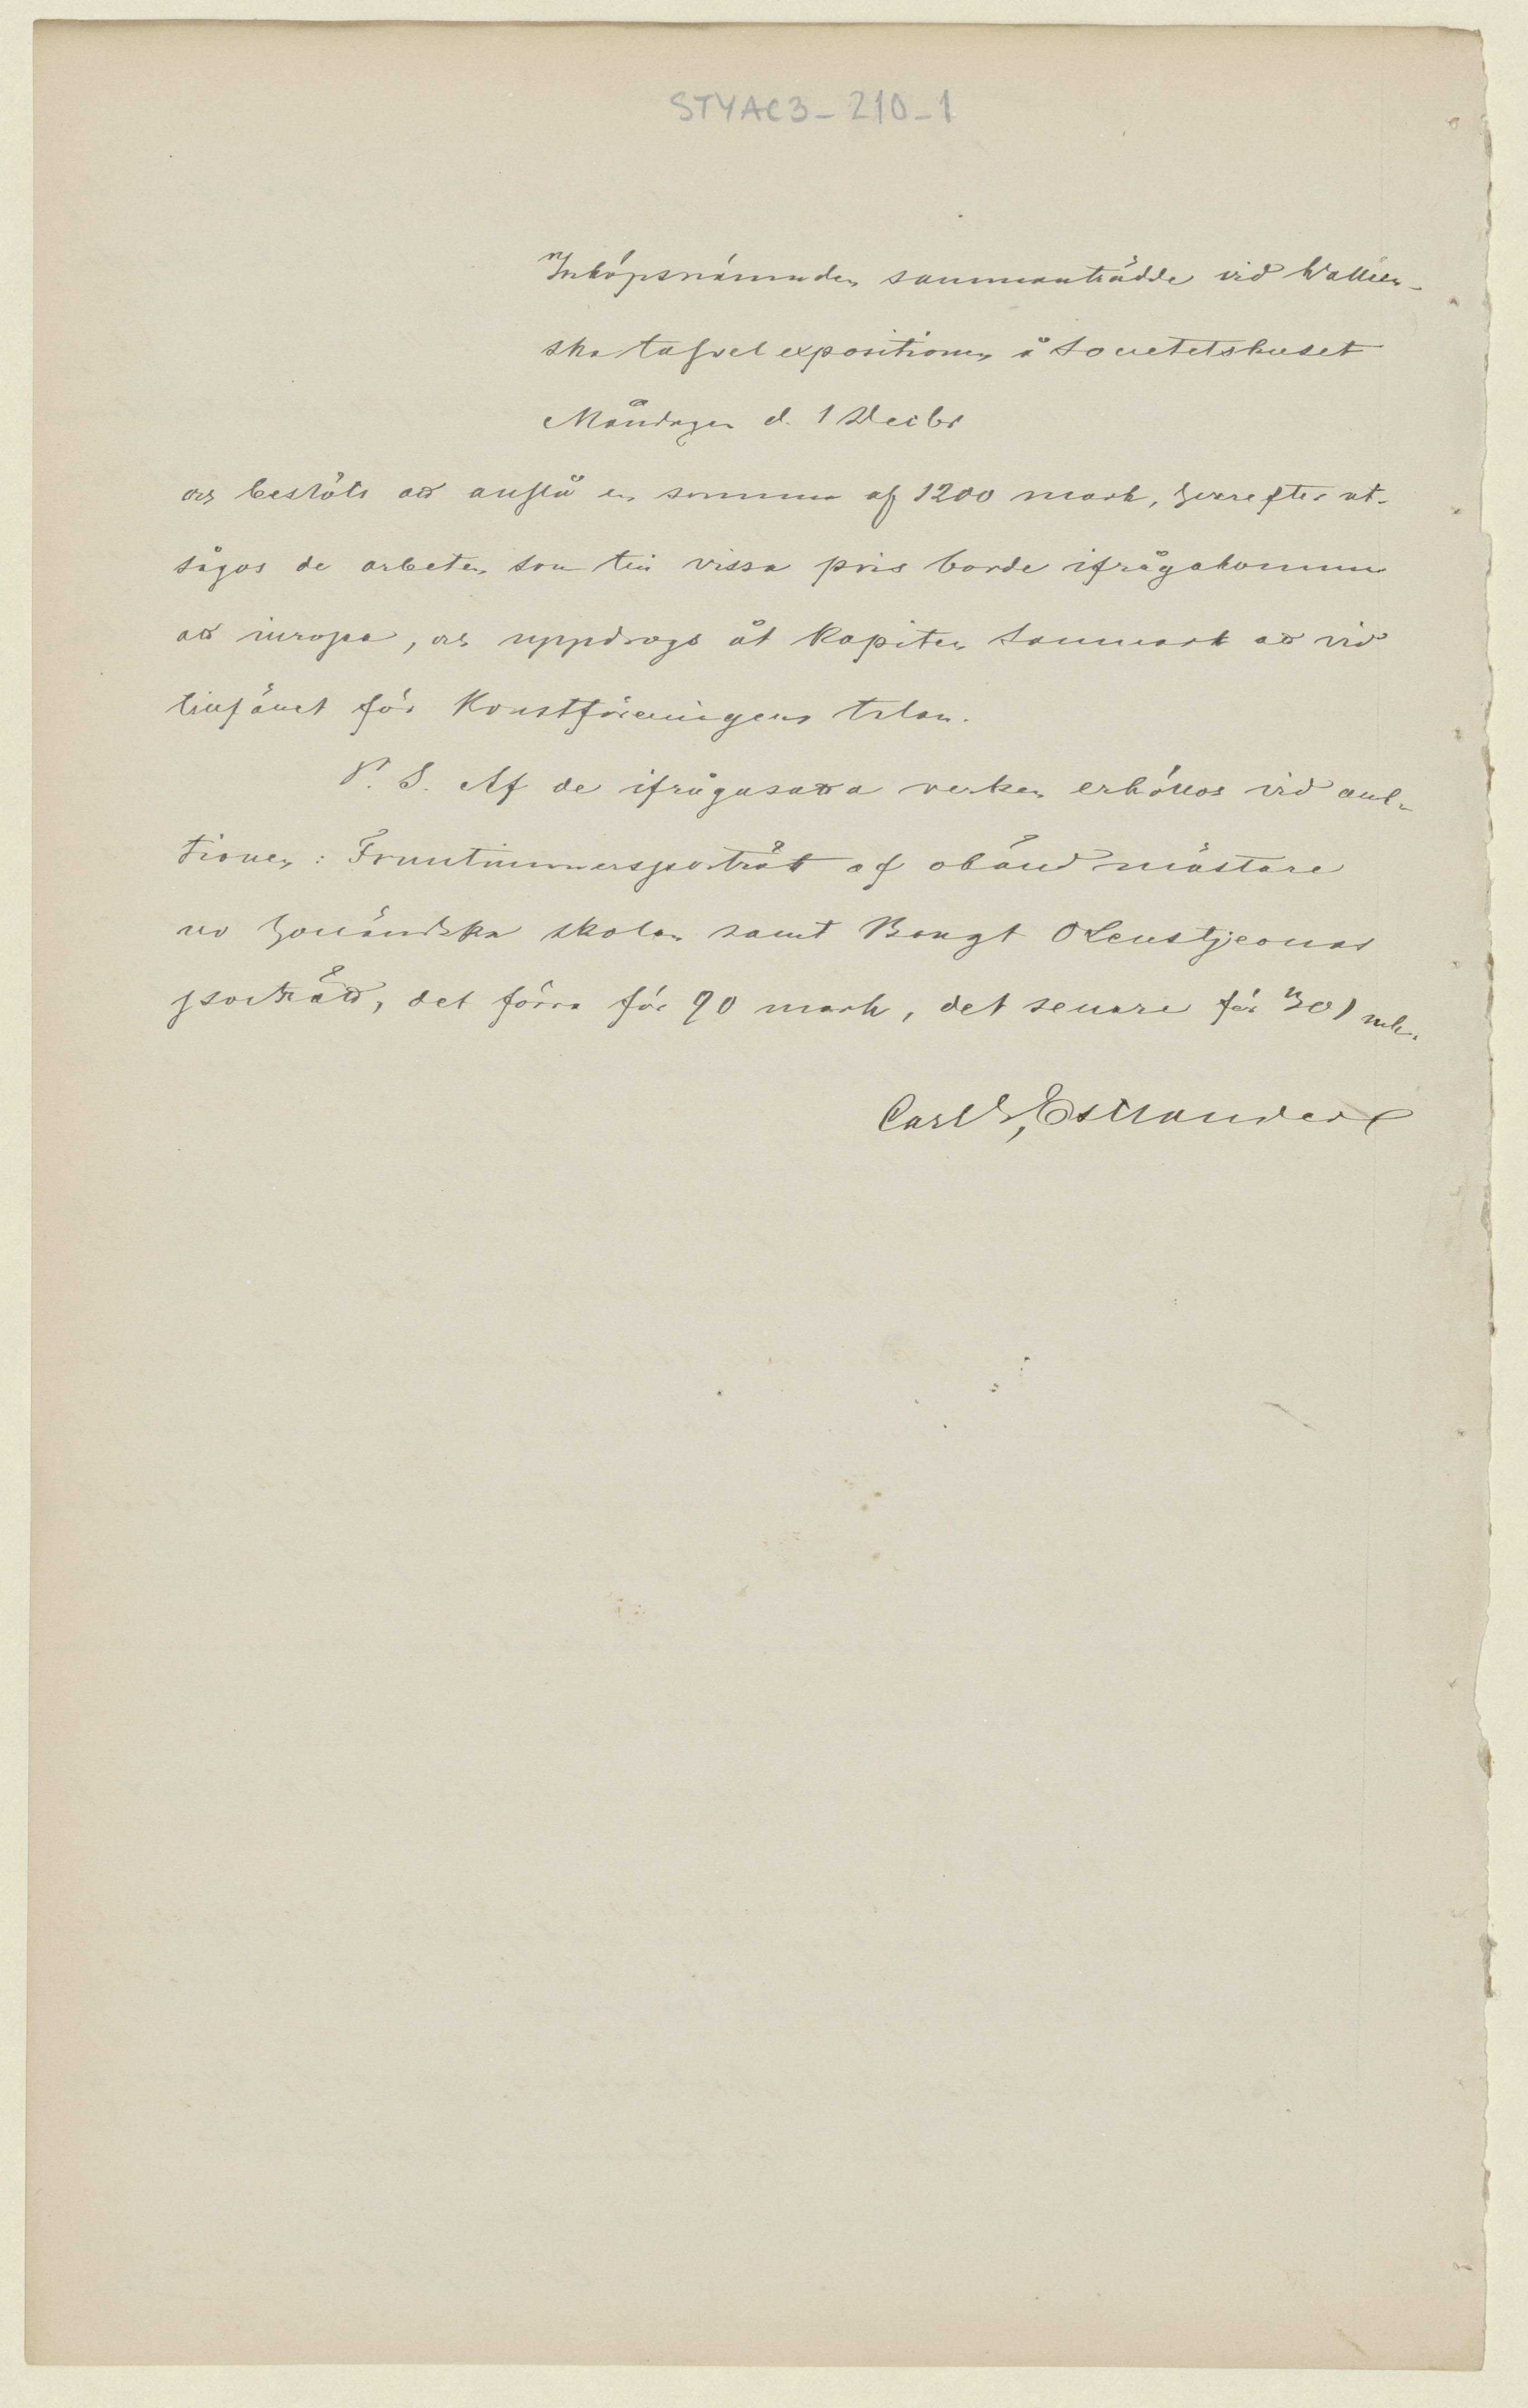 STYAC3-210-1
Inköpsnämnden sammanträdde vid Walleen-
ska tafvelexpositionen å Societetshuset
Måndagen d. 1 Decbr
och beslöts att anslå en summa af 1200 mark, hvarefter ut-
sågos de arbeten som till vissa pris borde ifrågakomma
att inropa, och uppdrogs åt Kapiten Sanmark att vid
tillfället för Konstföreningens talan.
P. S. Af de ifrågasatta verken erhöllos vid auk-
tionen: Fruntimmersporträtt af okänd mästare
ur holländska skolan samt Bengt Oxenstjernas
porträtt, det förra för 90 mark, det senare för 301 mk.
Carl G, Estlander